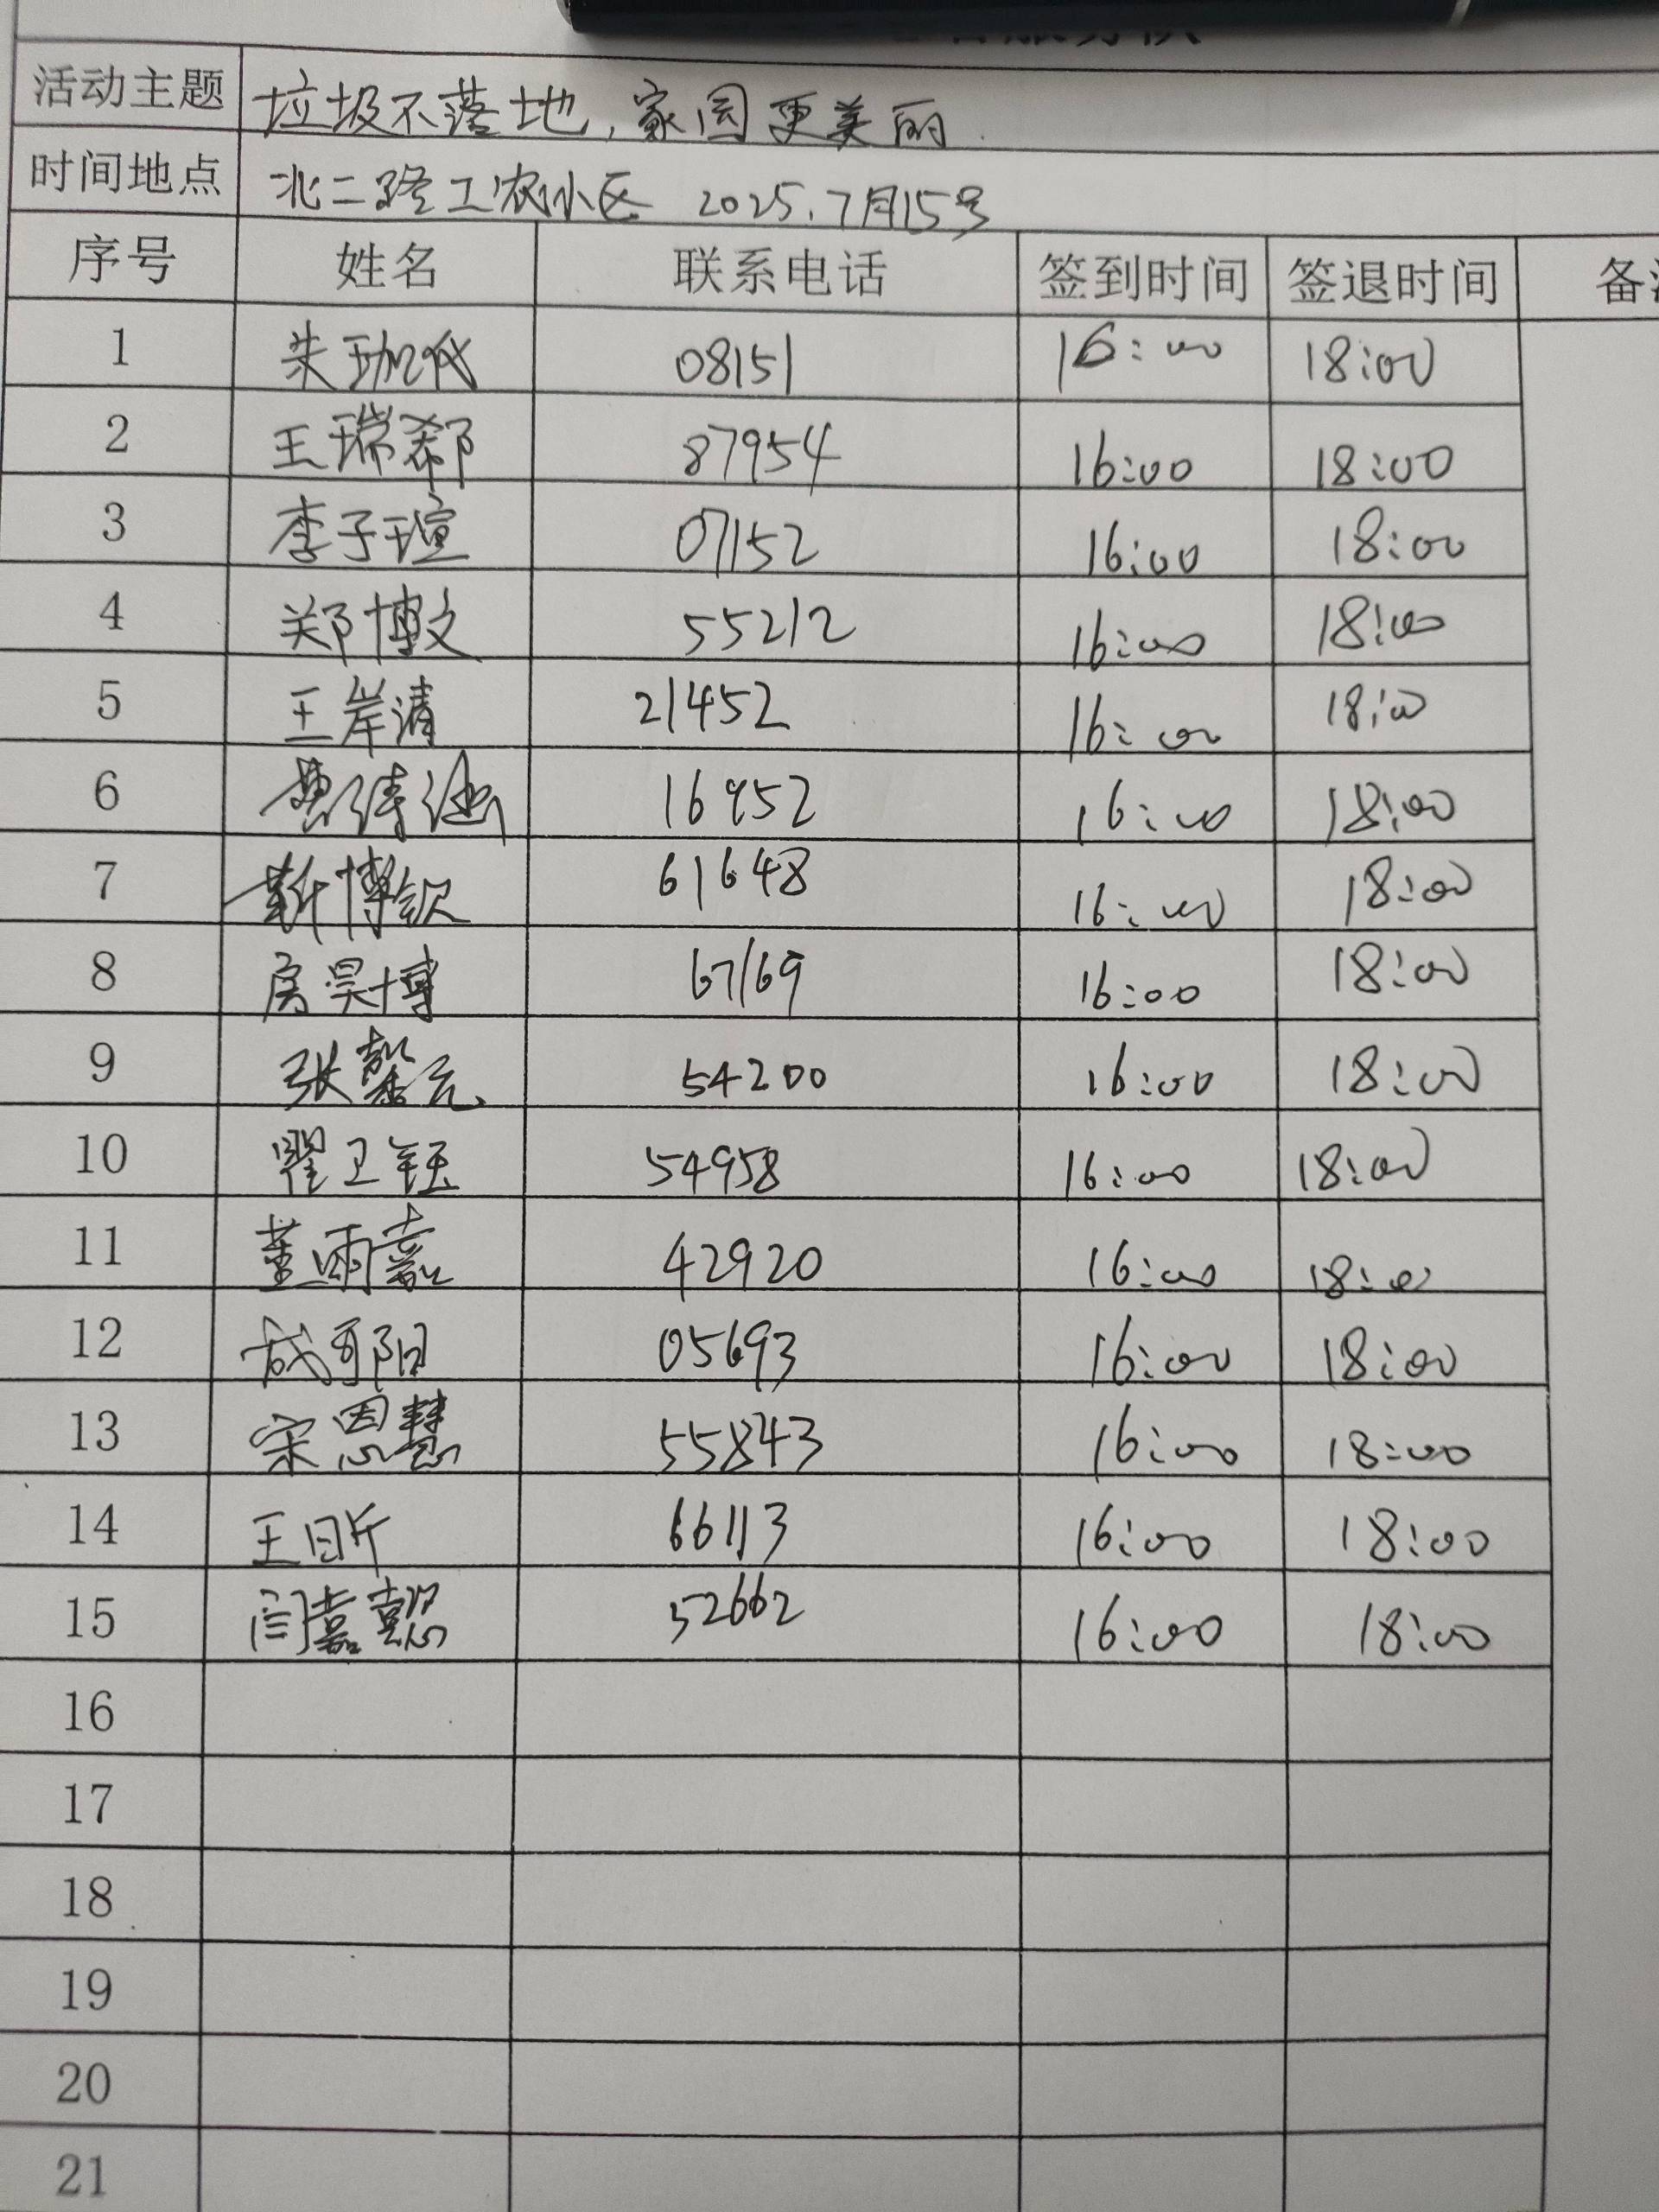 活动主题 垃圾不落地,家园更美丽.
时间地点 北二路工农小区 2025.7月15号
序号 姓名 联系电话 签到时间 签退时间
1 08151 16:00 18:00
2 王瑞郗 87954 16:00 18:00
3 李子瑄 07152 16:00 18:00
4 郑博文 55212 16:00 18:00
5 王岸清 21452 16:00 18:00
6 16952 16:00 18:00
7 靳博钦 61648 16:00 18:00
8 房昊博 67169 16:00 18:00
9 张馨元 54200 16:00 18:00
10 翟卫钰 54958 16:00 18:00
11 董雨嘉 42920 16:00 18:00
12 05693 16:00 18:00
13 宋恩慧 55843 16:00 18:00
14 王昕 66113 16:00 18:00
15 闫嘉懿 52662 16:00 18:00
16
17
18
19
20
21